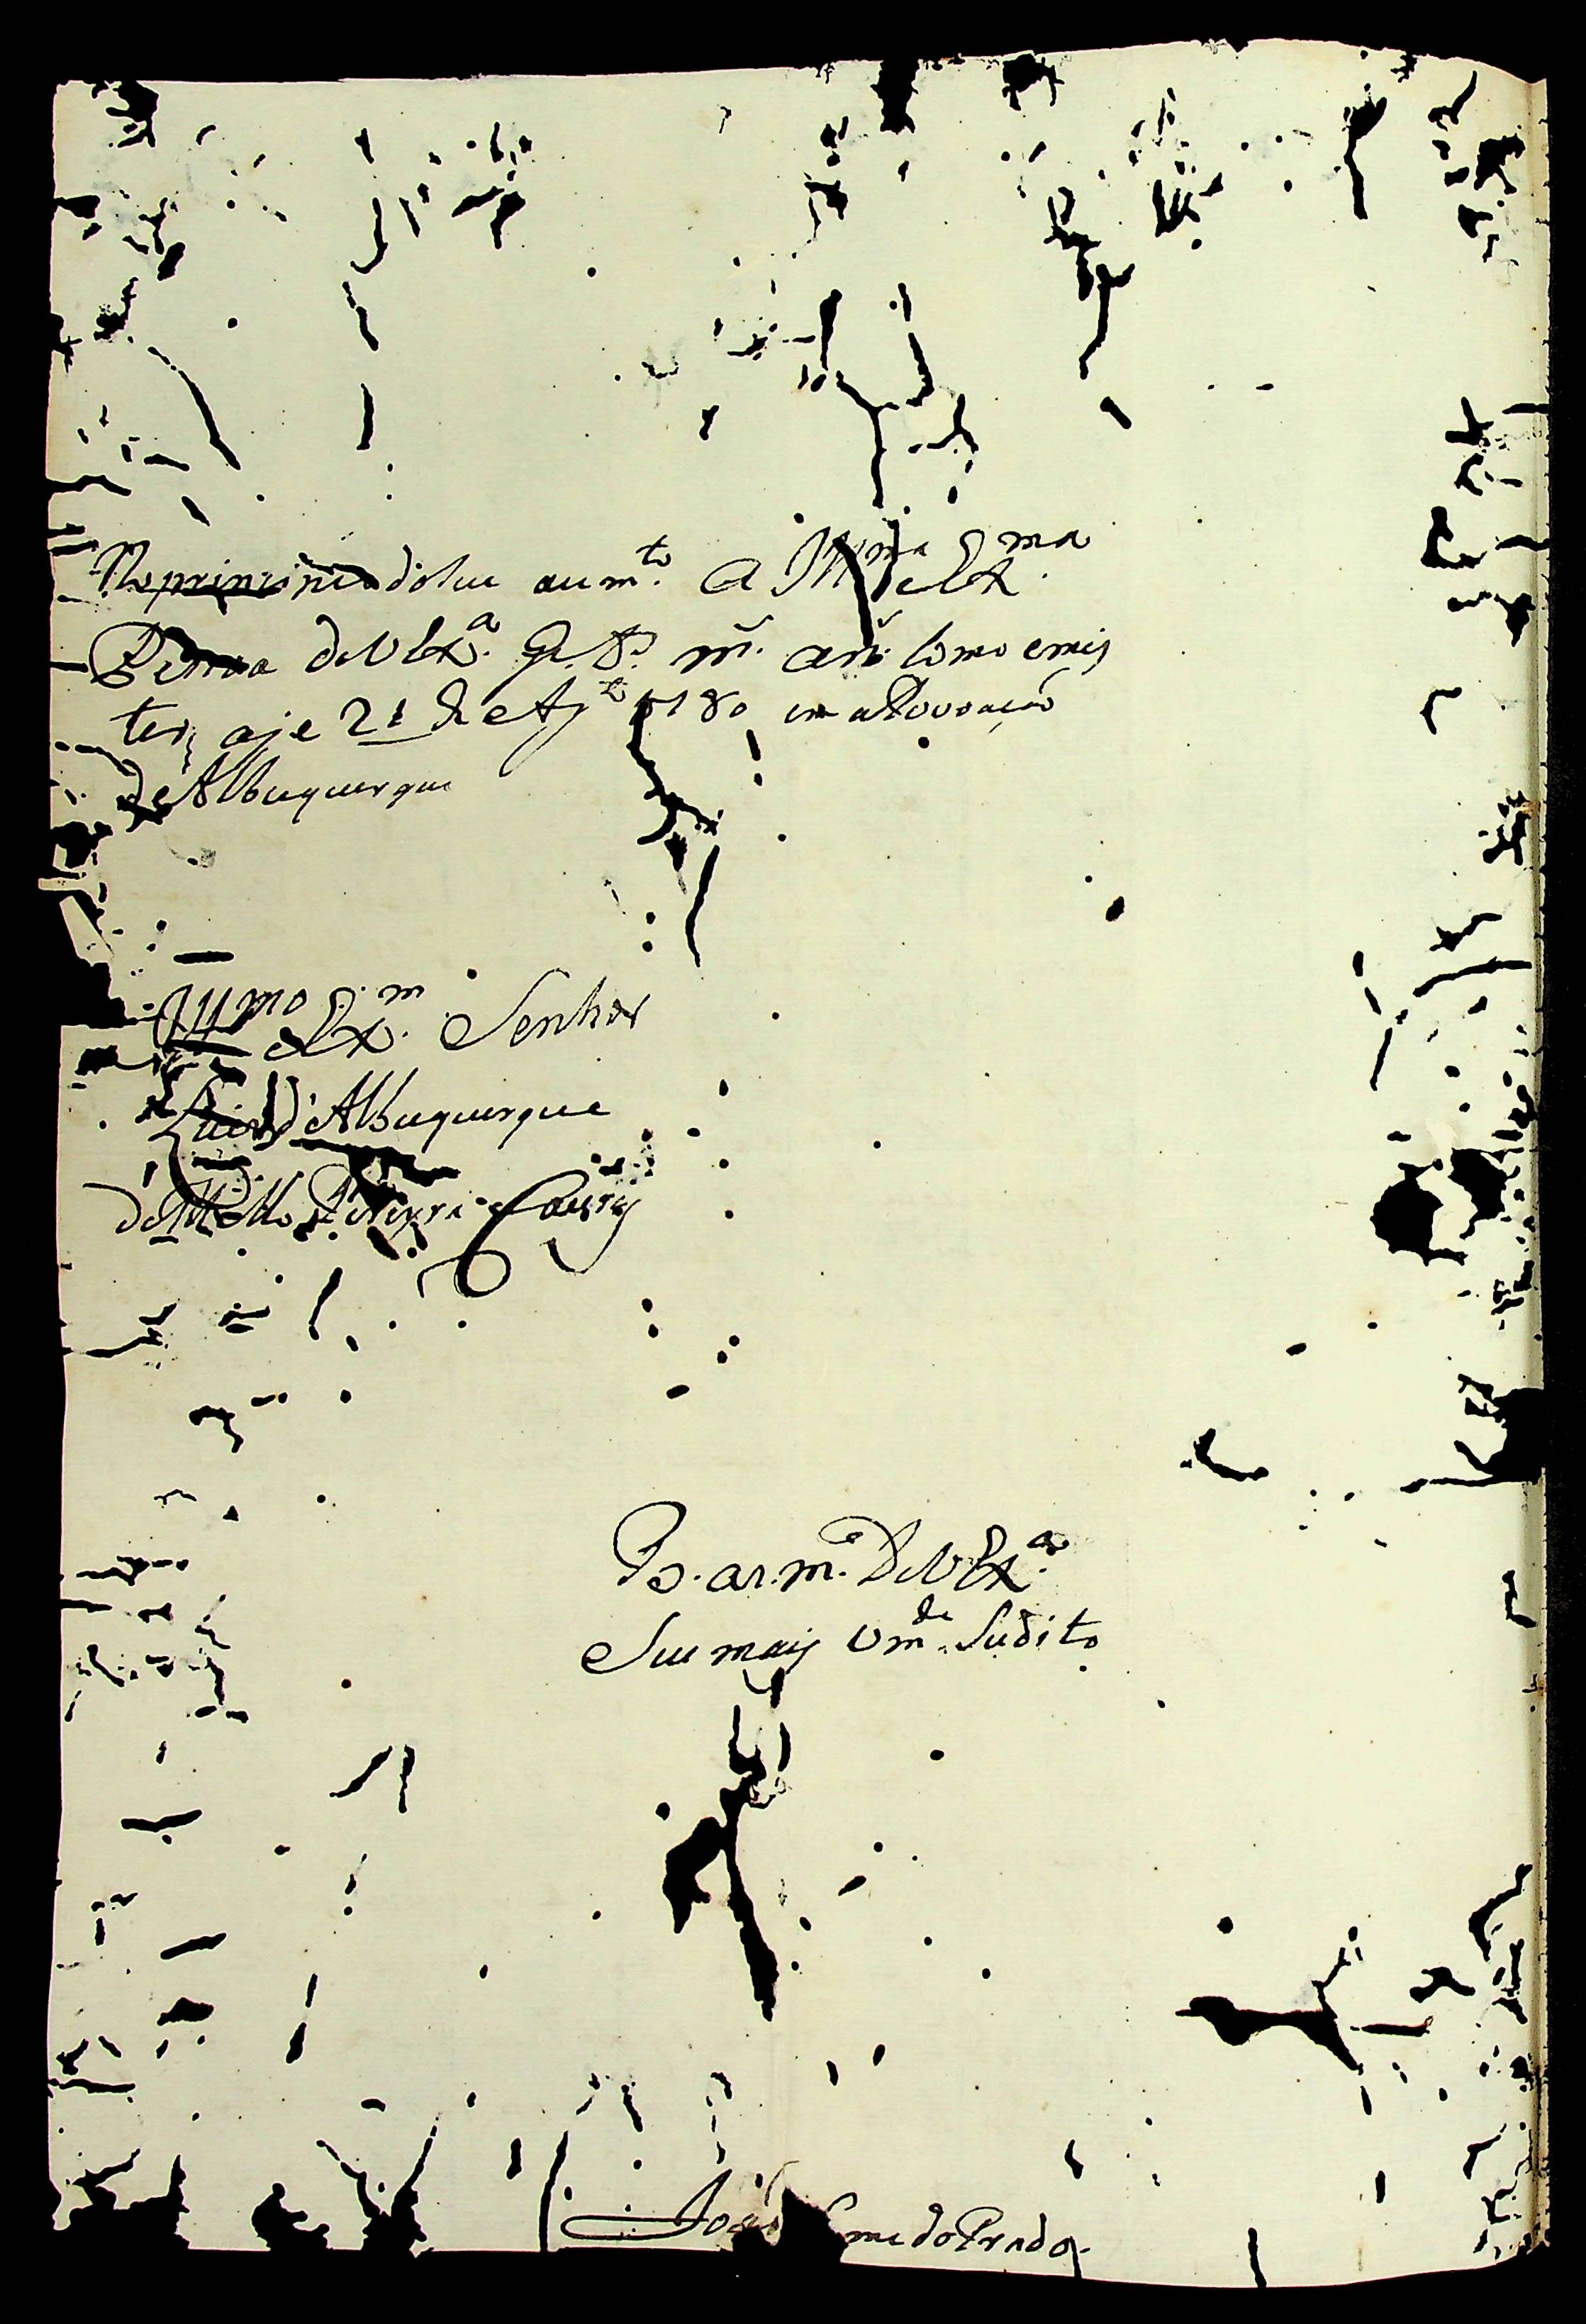 No principio do seu aum.to a Ill.ma e Ex.ma
Pessoa de V Ex.a G.e D.s m.s an.s Como emis
ter, aje 21 de Ag.to 1780 em a Povoação
de Albuquerque
Ill.mo e Ex.m Senhor
Luis d'Albuquerque
de Mello Pereira e Caseres
B. as. m.s De V Ex.a
Seu mais Um.de Sudito
João Leme do Prado